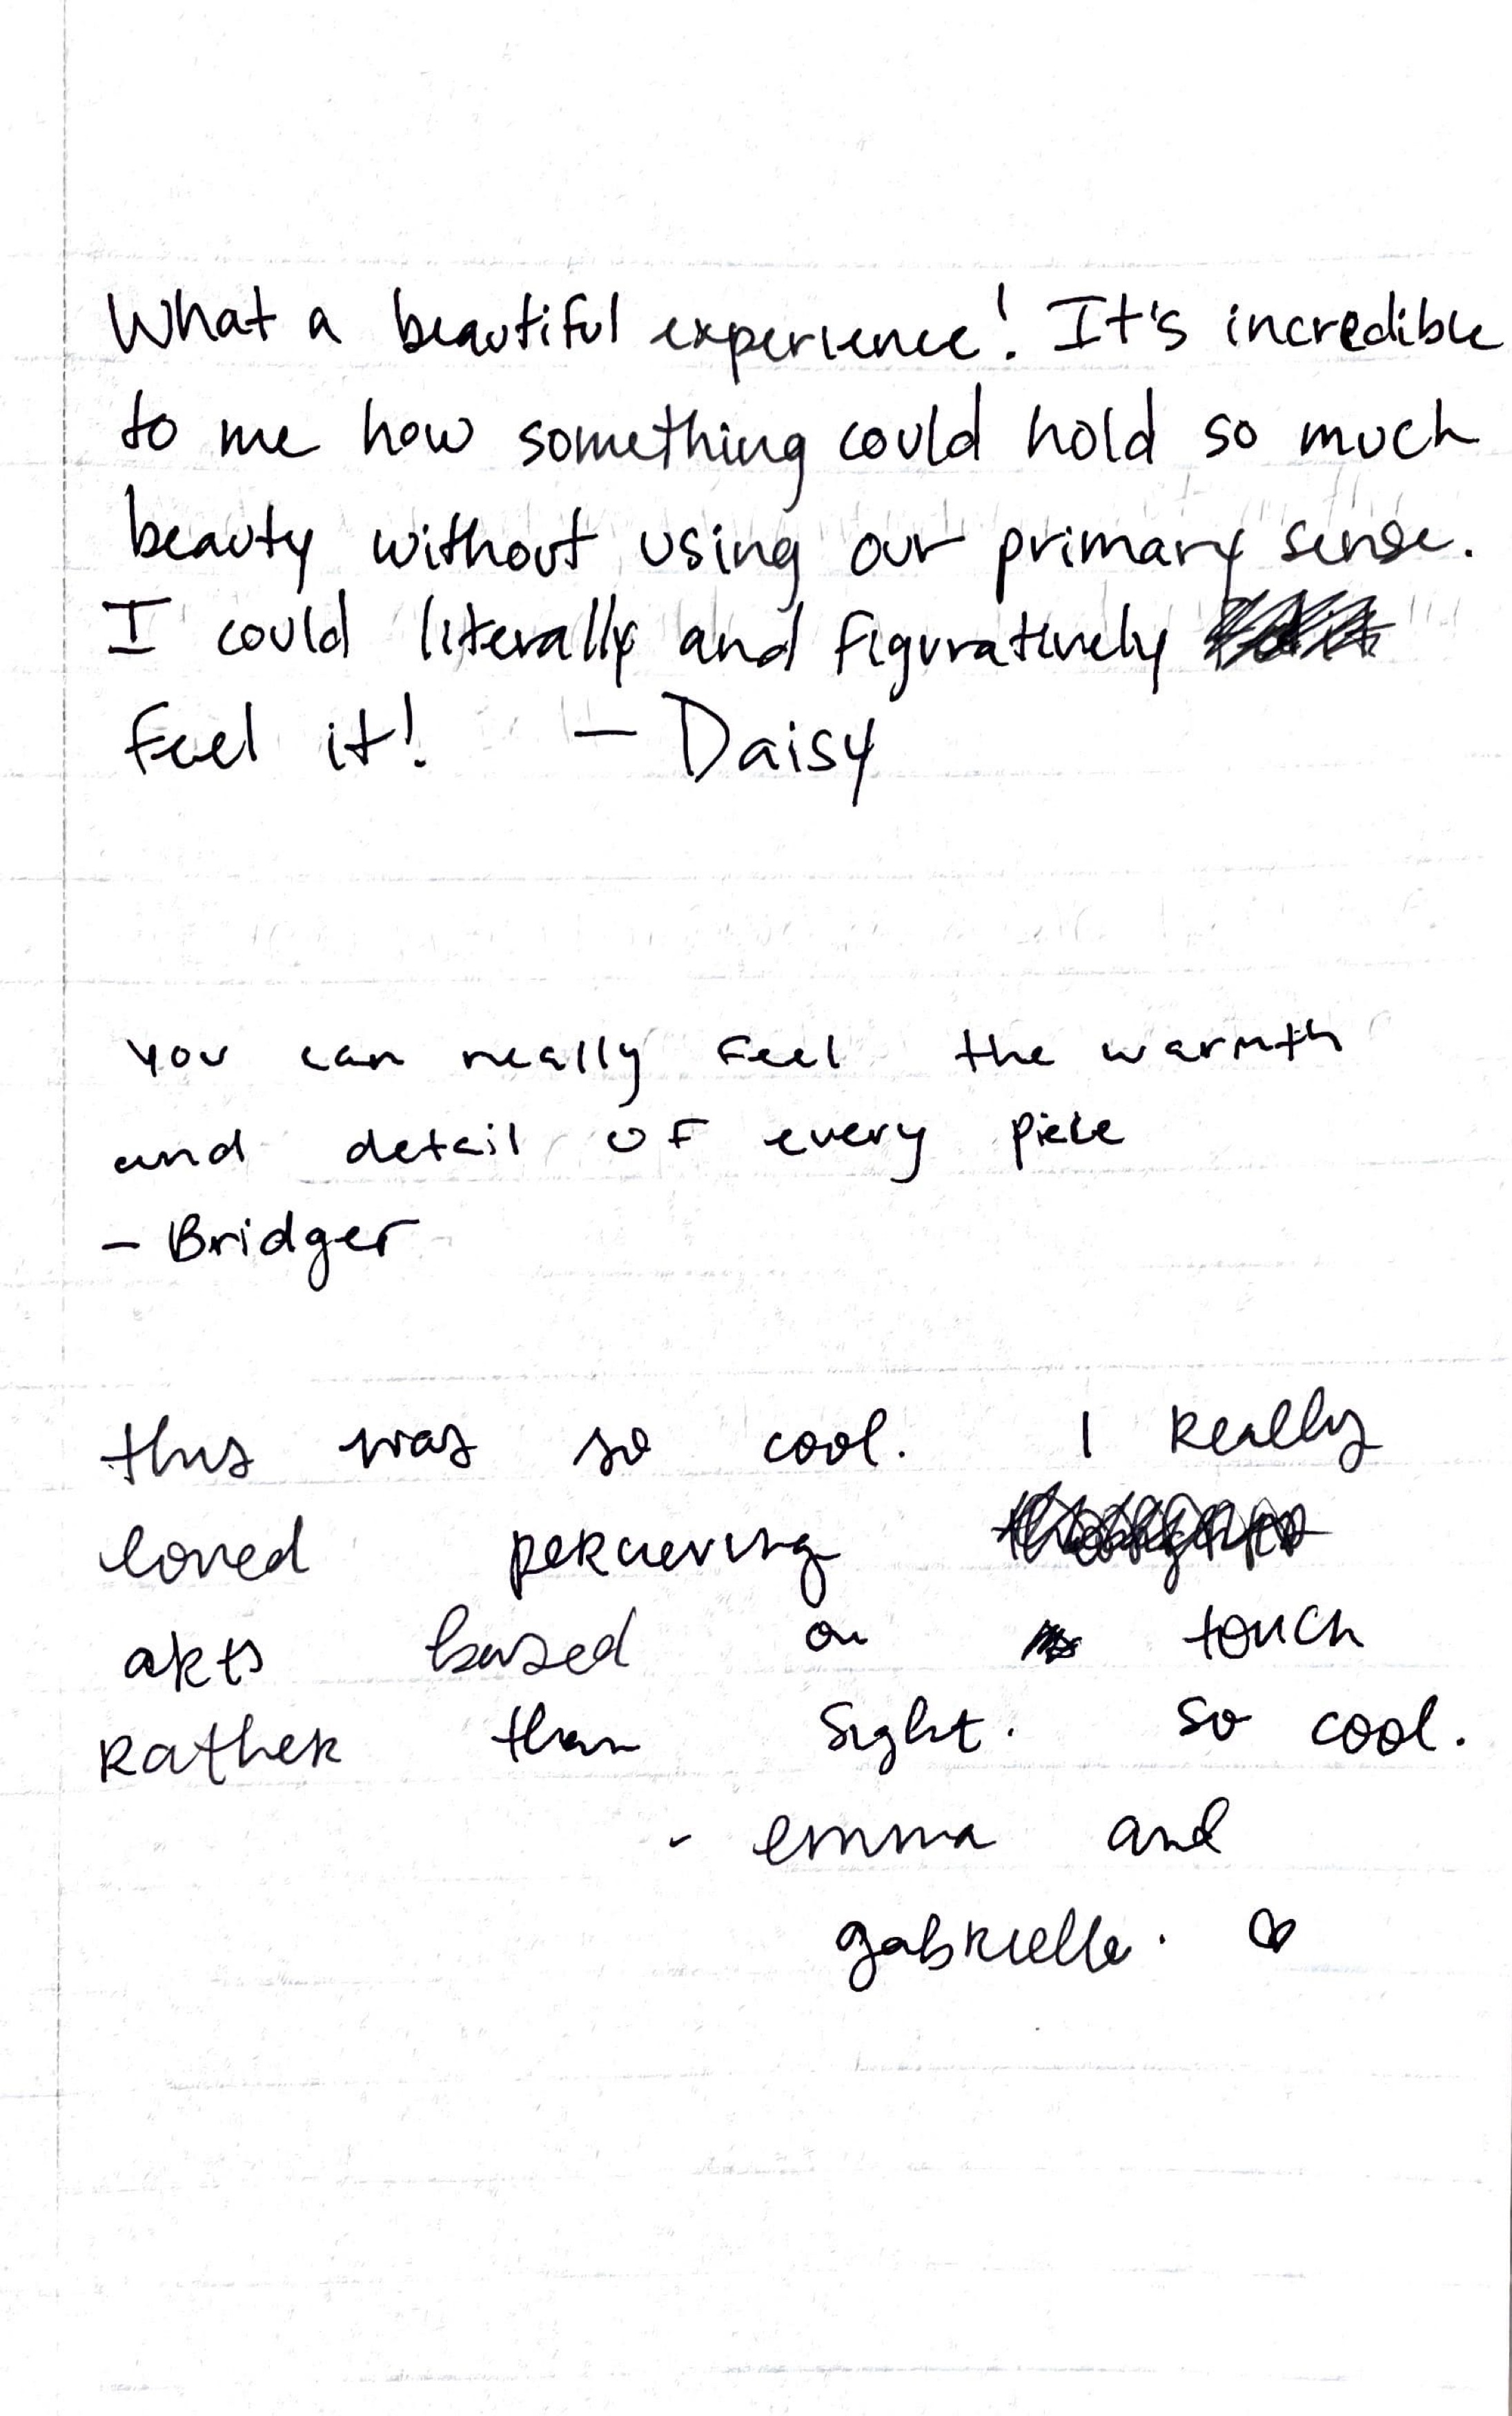 What a beautiful experience! It's incredible
to me how something could hold so much
beauty without using our primary sense.
I could literally and figuratively
feel it! - Daisy
You can really feel the warmth
and detail of every piece
- Bridger
this was so cool. I really
loved percieving
arts based on touch
rather than sight. so cool.
- emma and
gabrielle. ♡